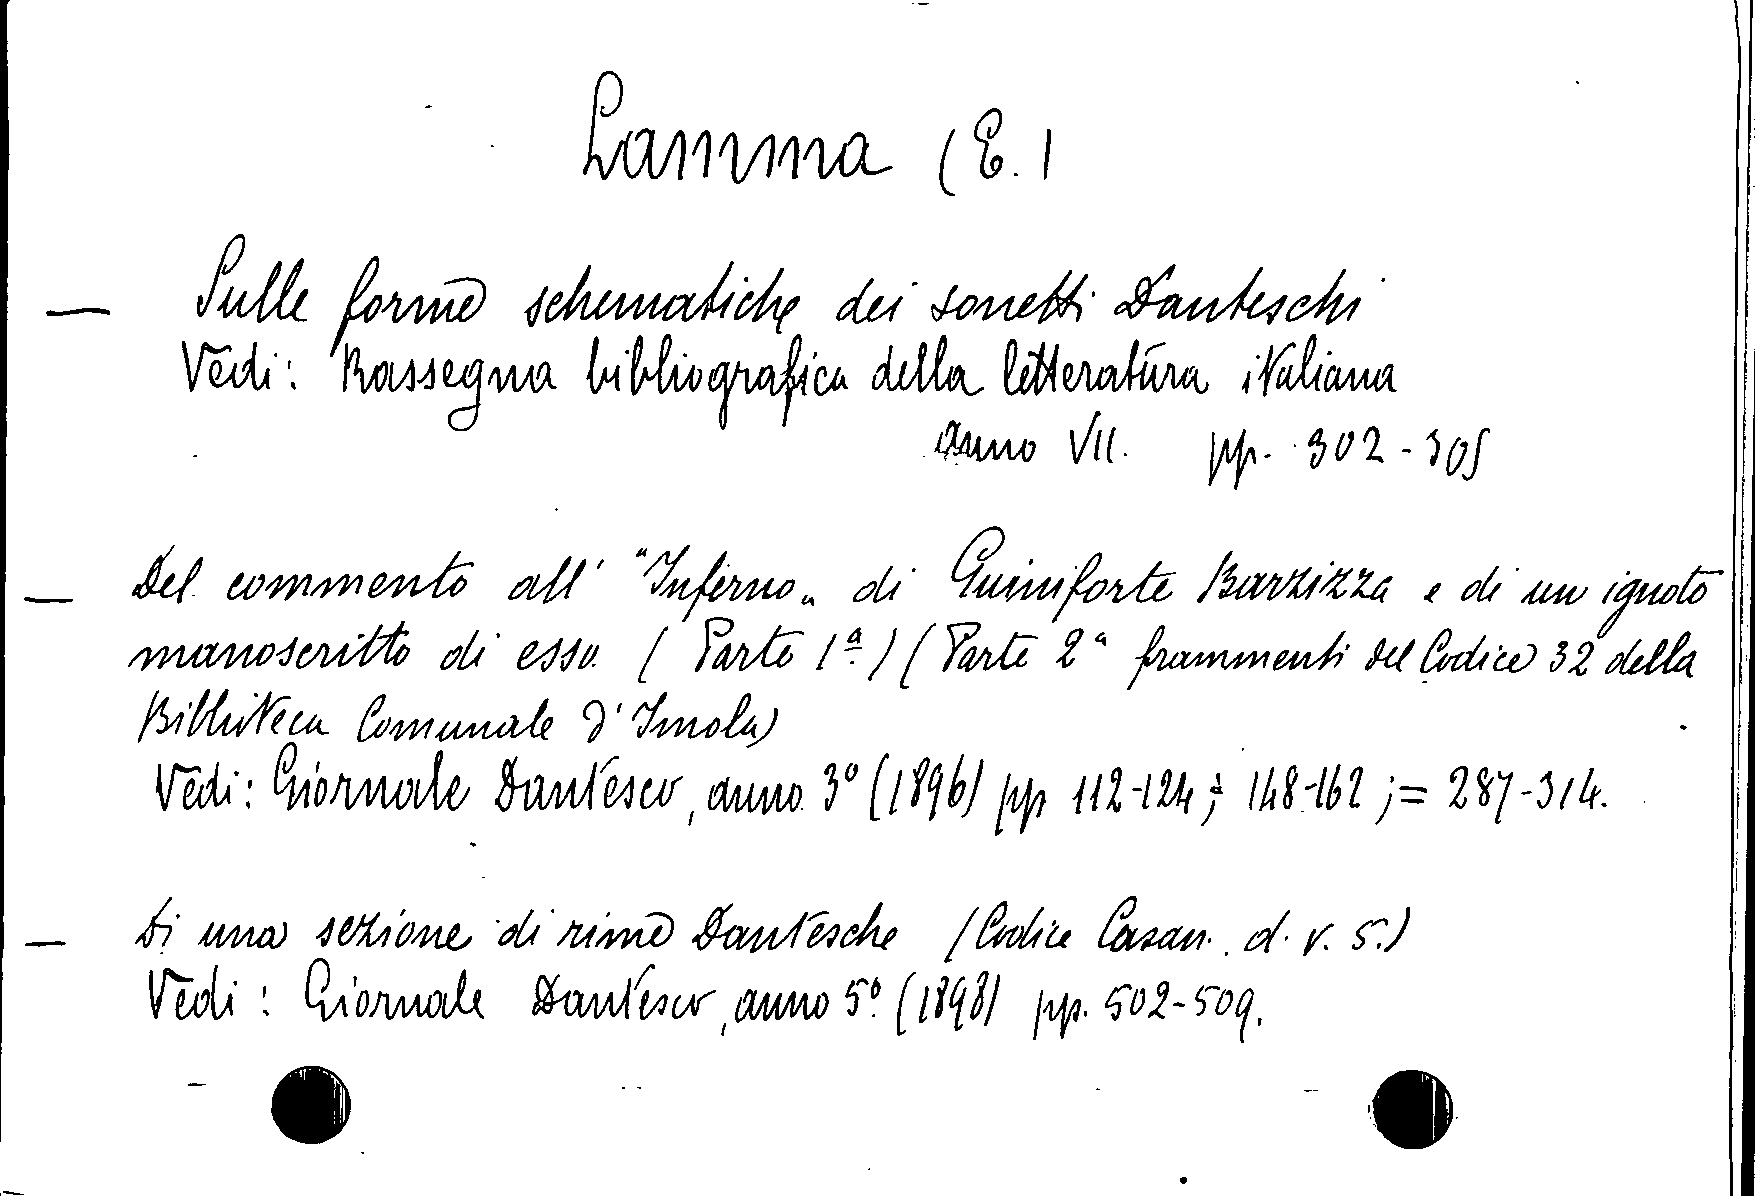 Lamma (E.)
— Sulle forme schematiche dei sonetti Danteschi
Vedi: Rassegna bibliografica della letteratura italiana
anno VII. pp. 302-305
— Del commento all' "Inferno„ di Guiniforte Barzizza e di un ignoto
manoscritto di esso. (Parte 1ª) (Parte 2ª frammenti del Codice 32 della
Biblioteca Comunale d'Imola)
Vedi: Giornale Dantesco, anno 3º (1896) pp 112-124; 148-162 ;= 287-314.
— Di una sezione di rime Dantesche (Codice Casan. d. v. 5.)
Vedi: Giornale Dantesco, anno 5º (1898) pp. 502-509.